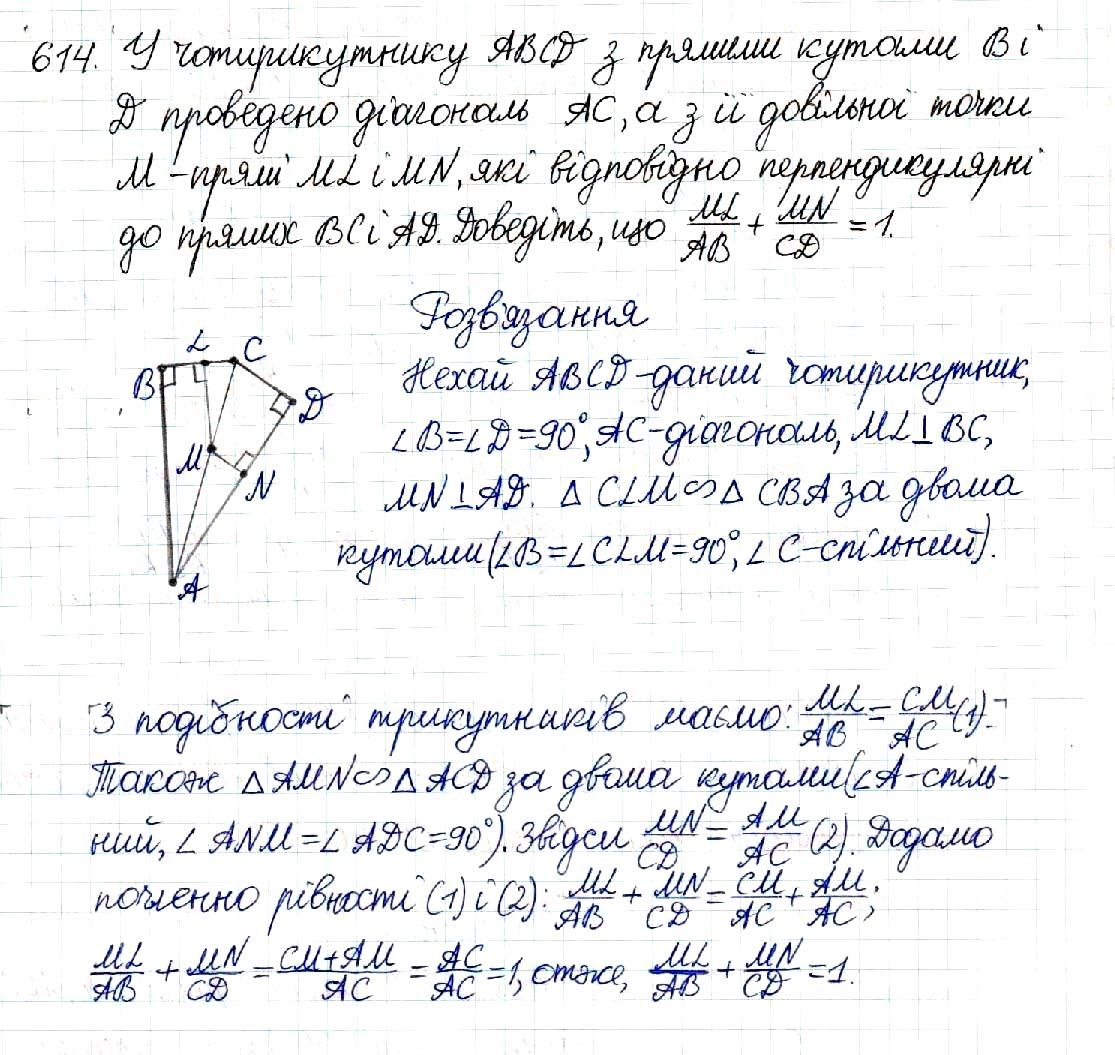 614. У чотирикутнику ABCD з прямими кутами B і
D проведено діагональ AC, а з її довільної точки
M – прямі ML і MN, які відповідно перпендикулярні
до прямих BC і AD. Доведіть, що ML/AB + MN/CD = 1.
Розв'язання
B L C D M N A
Нехай ABCD – даний чотирикутник,
∠B = ∠D = 90°, AC – діагональ, ML ⊥ BC,
MN ⊥ AD. △ CLM ∽ △ CBA за двома
кутами (∠B = ∠CLM = 90°, ∠C – спільний).
З подібності трикутників маємо: ML/AB = CM/AC (1).
Також △ AMN ∽ △ ACD за двома кутами (∠A – спіль-
ний, ∠ANM = ∠ADC = 90°). Звідси MN/CD = AM/AC (2). Додамо
почленно рівності (1) і (2): ML/AB + MN/CD = CM/AC + AM/AC;
ML/AB + MN/CD = CM + AM/AC = AC/AC = 1, отже, ML/AB + MN/CD = 1.